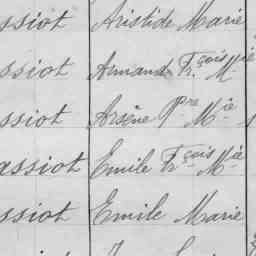 ssiot Aristide Marie
ssiot Armand Fçois Mie
ssiot Arsène Pre Mie
assiot Emile Fçois Mie
ssiot Emile Marie